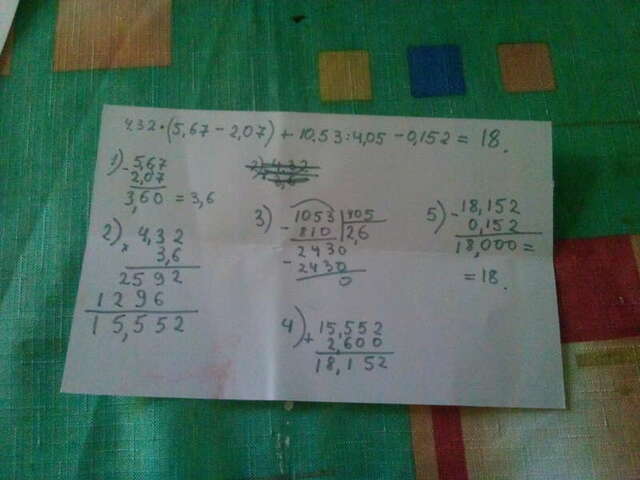 4,32·(5,67-2,07)+10,53:4,05-0,152=18.
1) -5,67
2,07
3,60=3,6
2) × 4,32
3,6
2592
1296
15,552
3) -1053 405
810 2,6
-2430
2430
0
4) +15,552
2,600
18,152
5) -18,152
0,152
18,000=
=18.